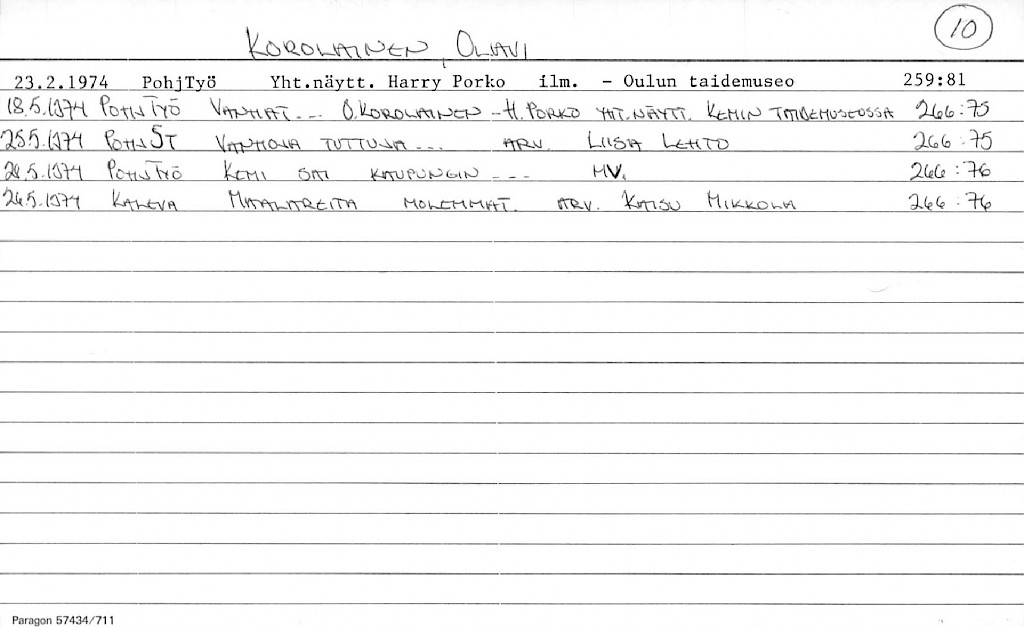 10
KOROLAINEN, OLAVI
23.2.1974 PohjTyö Yht.näytt. Harry Porko ilm. - Oulun taidemuseo 259:81
18.5.1974 POHJTYÖ VANHAT... O.KOROLAINEN - H. PORKO YHT.NÄYTT. KEMIN TAIDEMUSEOSSA 266:75
25.5.1974 POHJST VANHOJA TUTTUJA... ARV. LIISA LEHTO 266:75
POHJTYÖ KEMI SAI KAUPUNGIN --- MV. 266:76
26.5.1974 KALEVA MAALAREITA MOLEMMAT. ARV. KAISU MIKKOLA 266:76
Paragon 57434/711